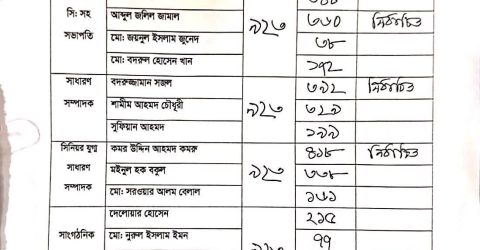 সি: সহ
সভাপতি
আব্দুল জলিল জামাল ৩৬০ নির্বাচিত
মো: জয়নুল ইসলাম জুনেদ ৯২৩ ৩৮
মো: বদরুল হোসেন খান ১৭২
সাধারণ
সম্পাদক
বদরুজ্জামান সজল ৩৯২ নির্বাচিত
শামীম আহমদ চৌধুরী ৯২৩ ৩২৯
সুফিয়ান আহমদ ১৯৯
সিনিয়র যুগ্ম
সাধারণ
সম্পাদক
কমর উদ্দিন আহমদ কমরু ৪১৮ নির্বাচিত
মইনুল হক বকুল ৯২৩ ৩৩৮
মো: সরওয়ার আলম বেলাল ১৬১
সাংগঠনিক
দেলোয়ার হোসেন ২১৫
মো: নুরুল ইসলাম ইমন ৭৭